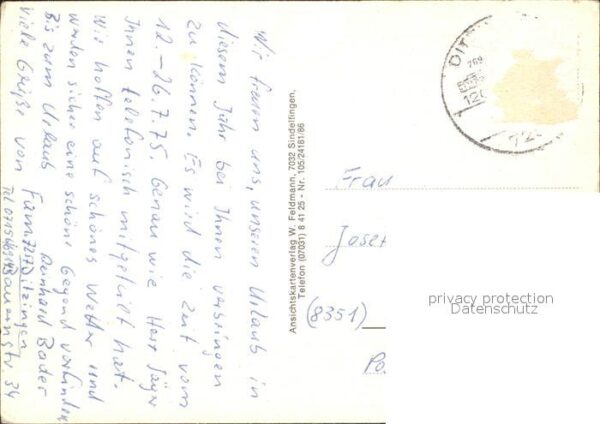 Wir freuen uns, unseren Urlaub in
diesem Jahr bei Ihnen verbringen
zu können. Es wird die Zeit vom
12.-26.7.75. Genau wie Herr Jäger
Ihnen telefonisch mitgeteilt hat.
Wir hoffen auf schönes Wetter und
werden sicher eine schöne Gegend vorfinden
Bis zum Urlaub
Viele Grüße von Fam. Reinhard Bader
7257 Ditzingen
Bauernstr. 34
Tel 07156
Ansichtskartenverlag W. Feldmann, 7032 Sindelfingen,
Telefon (07031) 8 41 25 - Nr. 105/24181/86
DIT
Frau
Josef
(8351)
Po
privacy protection
Datenschutz